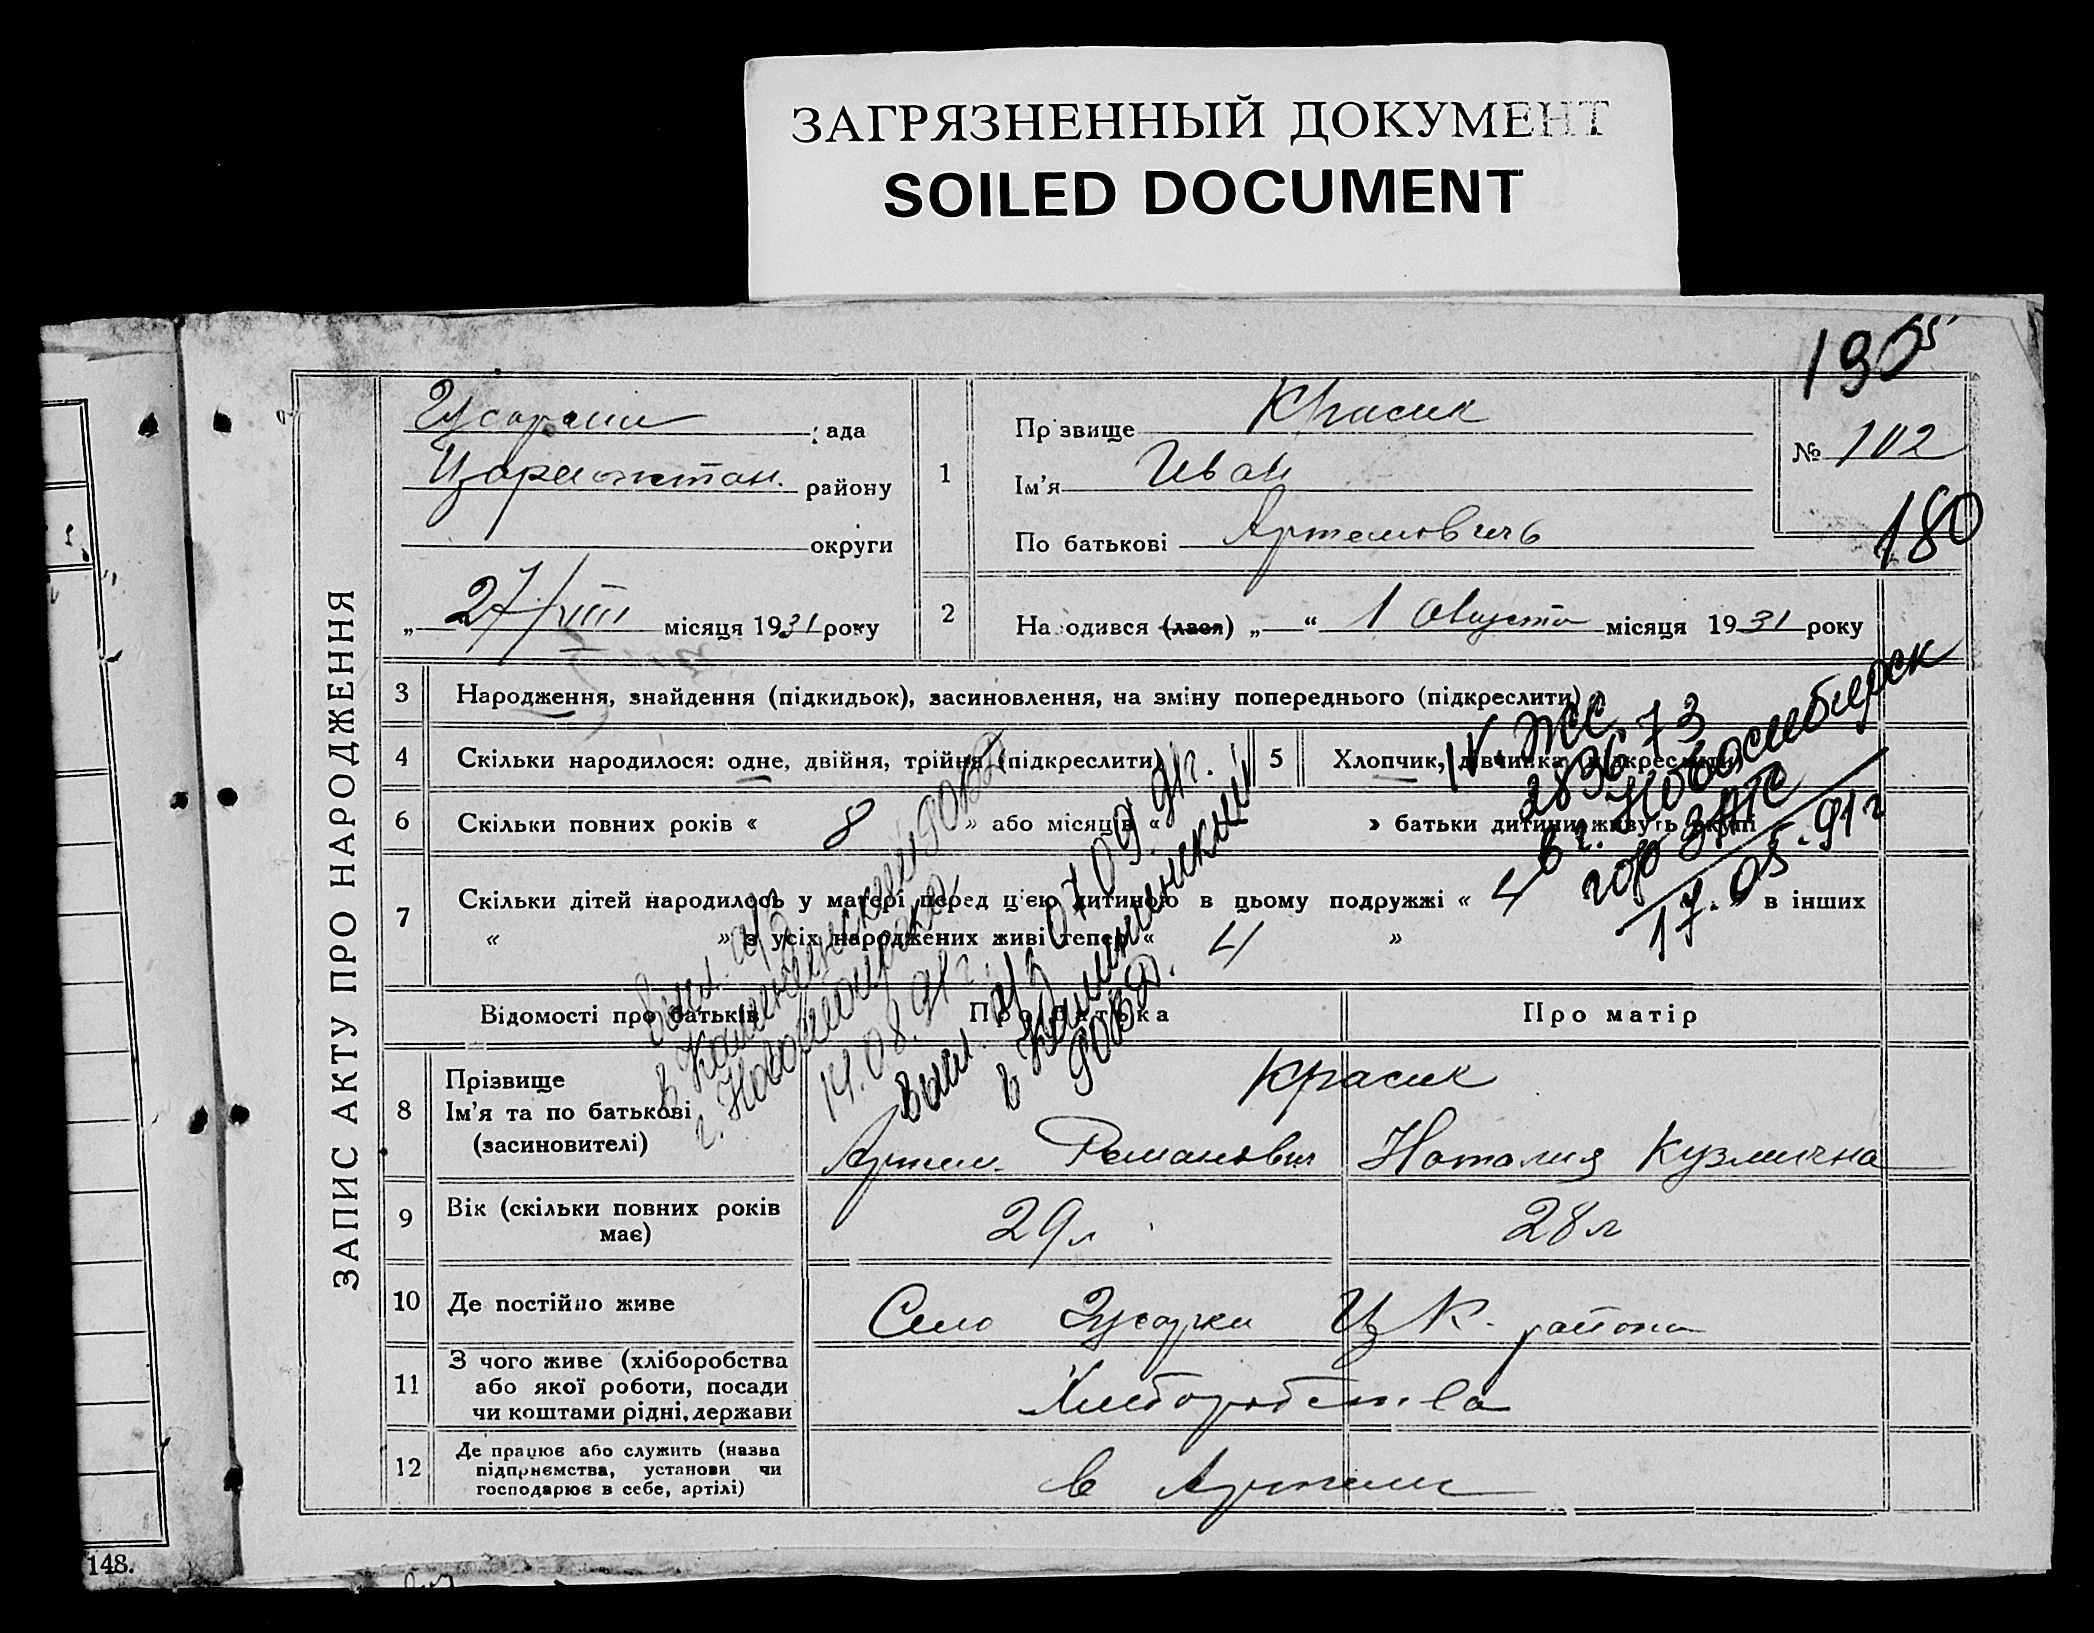 ЗАГРЯЗНЕННЫЙ ДОКУМЕНТ
SOILED DOCUMENT
190
ЗАПИС АКТУ ПРО НАРОДЖЕННЯ
рада
району
округи
„ 27/VIII місяця 1931 року
1
Прізвище Красик
Ім'я Иван
По батькові Артемовичь
№ 102
180
2
Народився (лася) „ “ 1 Августа місяця 1931 року
3 Народження, знайдення (підкидьок), засиновлення, на зміну попереднього (підкреслити)
4 Скільки народилося: одне, двійня, трійня (підкреслити)
5 Хлопчик, дівчинка (підкреслити)
6 Скільки повних років « 8 » або місяців « » батьки дитини живуть вкупі
7 Скільки дітей народилось у матері перед ц'єю дитиною в цьому подружжі « 4 » в інших
« » з усіх народжених живі тепер « 4 »
IV ЖС
283673
в г. Новосибирск
гор ЗАГС
17.05.91г
в
г.
14.08.91г.
07.09.91г.
в
РОВД.
Відомості про батьків
Про батька
Про матір
8
Прізвище
Ім'я та по батькові
(засиновителі)
Красик
Артем. Романович
Наталия Кузмична
9
Вік (скільки повних років
має)
29л
28л
10 Де постійно живе
Село Гусарки Ц К. района
11
З чого живе (хліборобства
або якої роботи, посади
чи коштами рідні, держави
Хлеборобства
12
Де працює або служить (назва
підприємства, установи чи
господарює в себе, артілі)
в Артели
148.